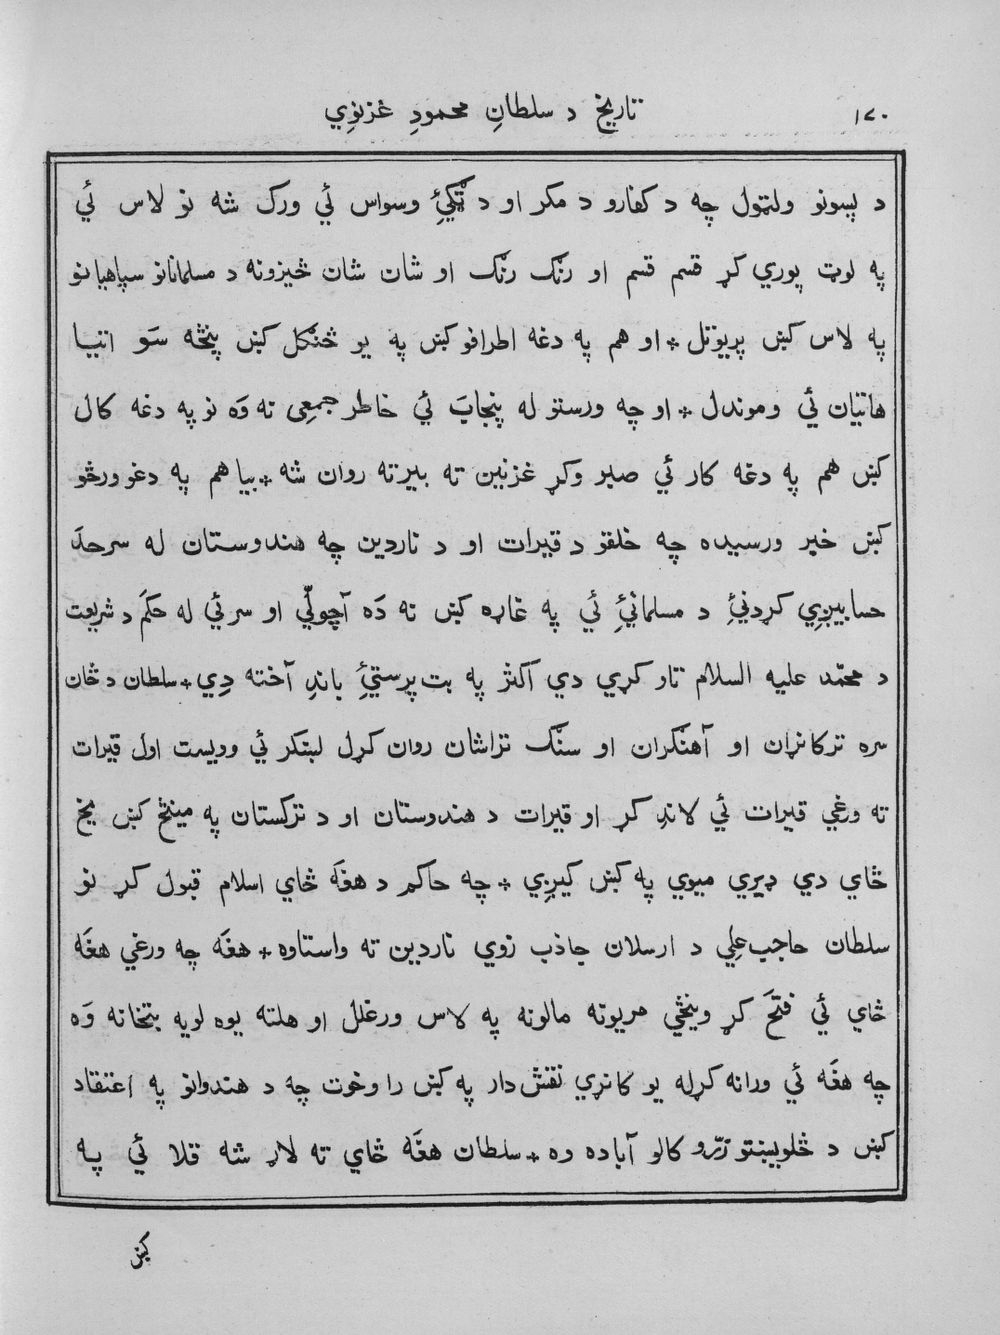 ۱۷۰
تاریخ د سلطانِ محمودِ غزنوِي
د پښونو ولټول چه د کفارو د مکر او د ټګیِٔ وسواس ئي ورک شه نو لاس ئي
په لوټ پوري کړ قسم قسم او رنګ رنګ او شان شان څیزونه د مسلمانانو سپاهیانو
په لاس کښ پریوتل ؞ او هم په دغه اطرافو کښ په یو ځنګل کښ پنځه سَو اتیا
هاتیان ئي وموندل ؞ او چه ورستو له پنجابَ ئي خاطر جمعِی ته وَه نو په دغه کال
کښ هم په دغه کار ئي صبر وکړ غزنین ته بیرته روان شه ؞ بیا هم په دغو ورځو
کښ خبر ورسیده چه خلقو د قیرات او د ناردین چه هندوستان له سرحدَ
حسابیږِي کړدنیِٔ د مسلمانیِٔ ئي په غاړه کښ نه دَه آچولّي او سر ئي له حکمَ د شریعت
د محمّد علیه السلام تار کړي دي اکثر په بت پرستیِٔ باندِ آخته دِي ؞ سلطان د ځان
سره ترکاڼان او آهنګران او سنګ تراشان روان کړل لښکر ئي وویست اول قیرات
ته ورغي قیرات ئي لاندِ کړ او قیرات د هندوستان او د ترکستان په مینځ کښ یخ
ځاي دي ډیري میوي په کښ کیږِي ؞ چه حاکم د هغهَ ځاي اسلام قبول کړ نو
سلطان حاجب علِي د ارسلان جاذب زوي ناردین ته واستاوه ؞ هغهَ چه ورغي هغهَ
ځاي ئي فتحَ کړ وینځي مریونه مالونه په لاس ورغلل او هلته یوه لویه بتخانه وَه
چه هغهَ ئي ورانه کړله یو کانړي نقش دار په کښ راوخوت چه د هندوانو په اعتقاد
کښ د څلویښتو زرّو کالو آباده وه ؞ سلطان هغهَ ځاي ته لاړ شه قلا ئي په
کښ